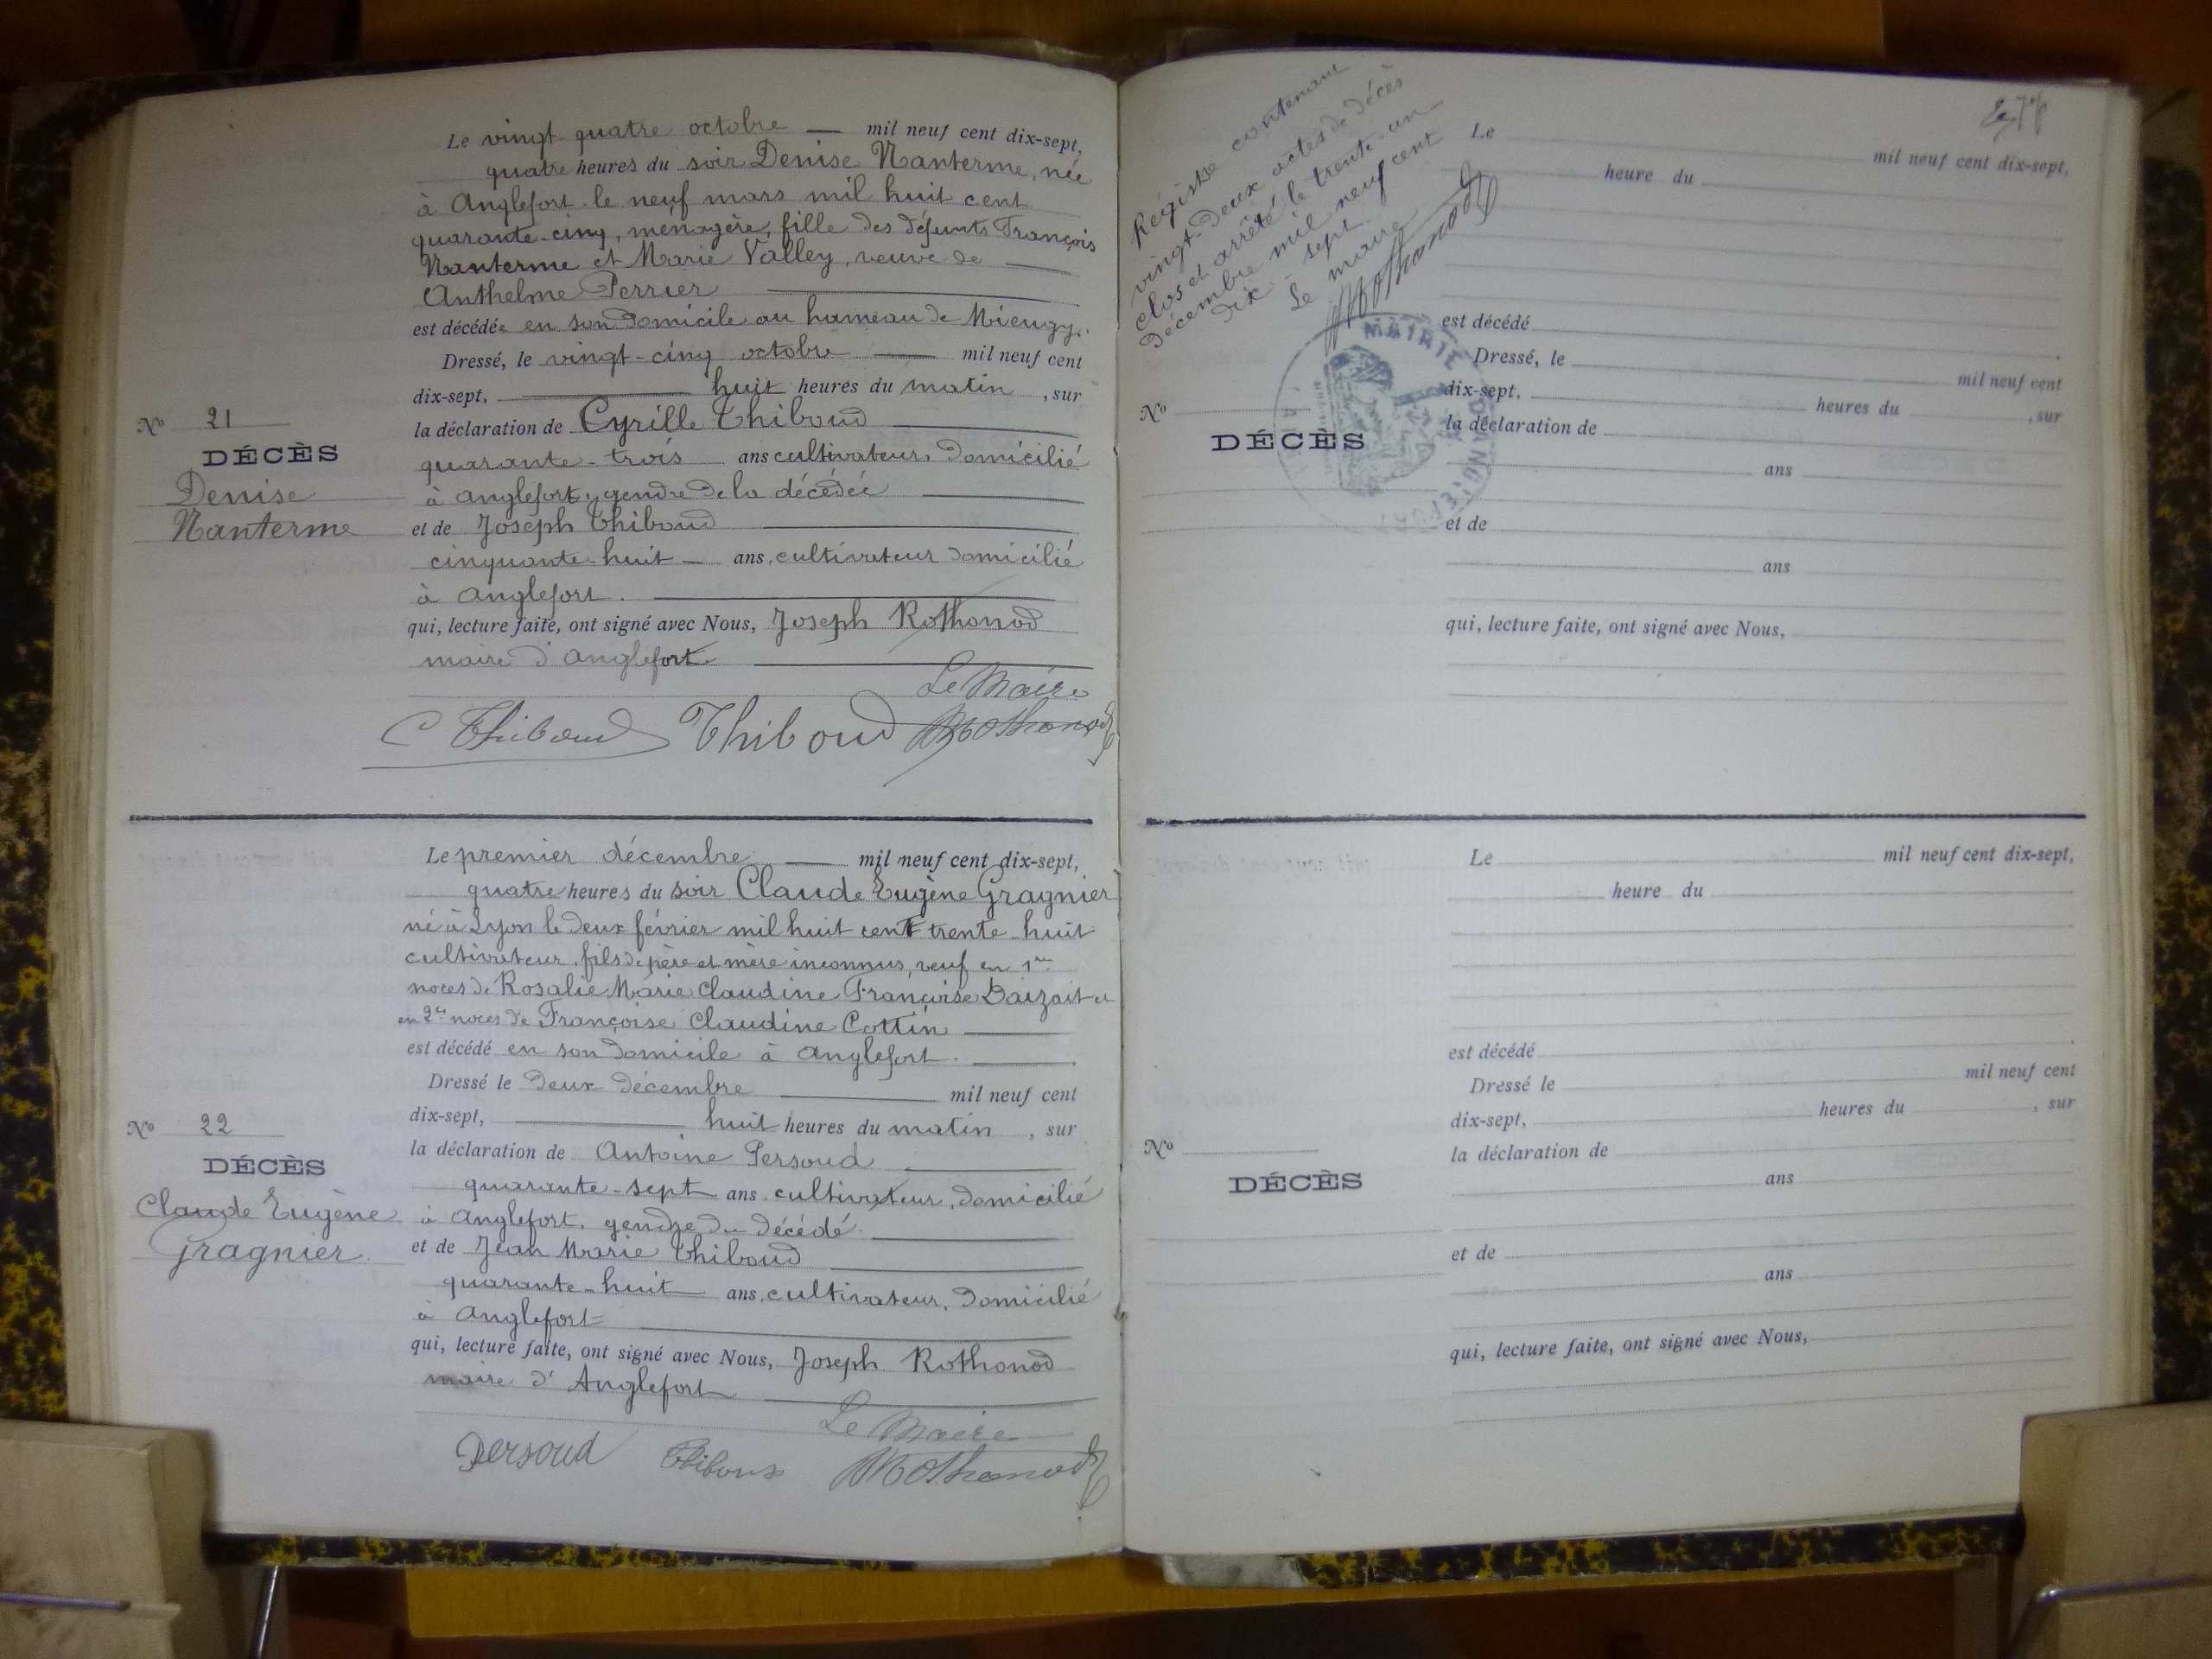 Le vingt-quatre octobre — mil neuf cent dix-sept,
quatre heures du soir Denise Nanterme, née
à Anglefort le neuf mars mil huit cent
quarante-cinq, ménagère, fille des défunts François
Nanterme et Marie Valley, veuve de
Anthelme Perrier
est décédée en son domicile au hameau de Mieugy.
Dressé, le vingt-cinq octobre — mil neuf cent
dix-sept, huit heures du matin, sur
la déclaration de Cyrille Thiboud
quarante-trois ans cultivateur, domicilié
à Anglefort, gendre de la décédée
et de Joseph Thiboud
cinquante-huit — ans, cultivateur domicilié
à Anglefort.
qui, lecture faite, ont signé avec Nous, Joseph Rothonod
maire d'Anglefort
Le Maire
C Thiboud Thiboud Rothonod
No 21
DÉCÈS
Denise
Nanterme
Le premier décembre — mil neuf cent dix-sept,
quatre heures du soir Claude Eugène Gragnier
né à Lyon le deux février mil huit cent trente-huit
cultivateur, fils de père et mère inconnus, veuf en 1res
noces de Rosalie Marie Claudine Françoise et
en 2es noces de Françoise Claudine Cottin
est décédé en son domicile à Anglefort.
Dressé le deux décembre mil neuf cent
dix-sept, huit heures du matin, sur
la déclaration de Antoine Persoud
quarante-sept ans, cultivateur, domicilié
à Anglefort, gendre du décédé
et de Jean Marie Thiboud
quarante-huit ans, cultivateur, domicilié
à Anglefort
qui, lecture faite, ont signé avec Nous, Joseph Rothonod
maire d'Anglefort
Le Maire
Persoud Thiboud Rothonod
No 22
DÉCÈS
Claude Eugène
Gragnier
Régistre contenant
vingt-deux actes de décès
clos et arrêté le trente-un
décembre mil neuf cent
dix-sept
Le maire
Rothonod
MAIRIE D'ANGLEFORT
Le mil neuf cent dix-sept,
heure du
est décédé
Dressé, le mil neuf cent
dix-sept, heures du , sur
la déclaration de
ans
et de
ans
qui, lecture faite, ont signé avec Nous,
No
DÉCÈS
Le mil neuf cent dix-sept,
heure du
est décédé
Dressé le mil neuf cent
dix-sept, heures du , sur
la déclaration de
ans
et de
ans
qui, lecture faite, ont signé avec Nous,
No
DÉCÈS